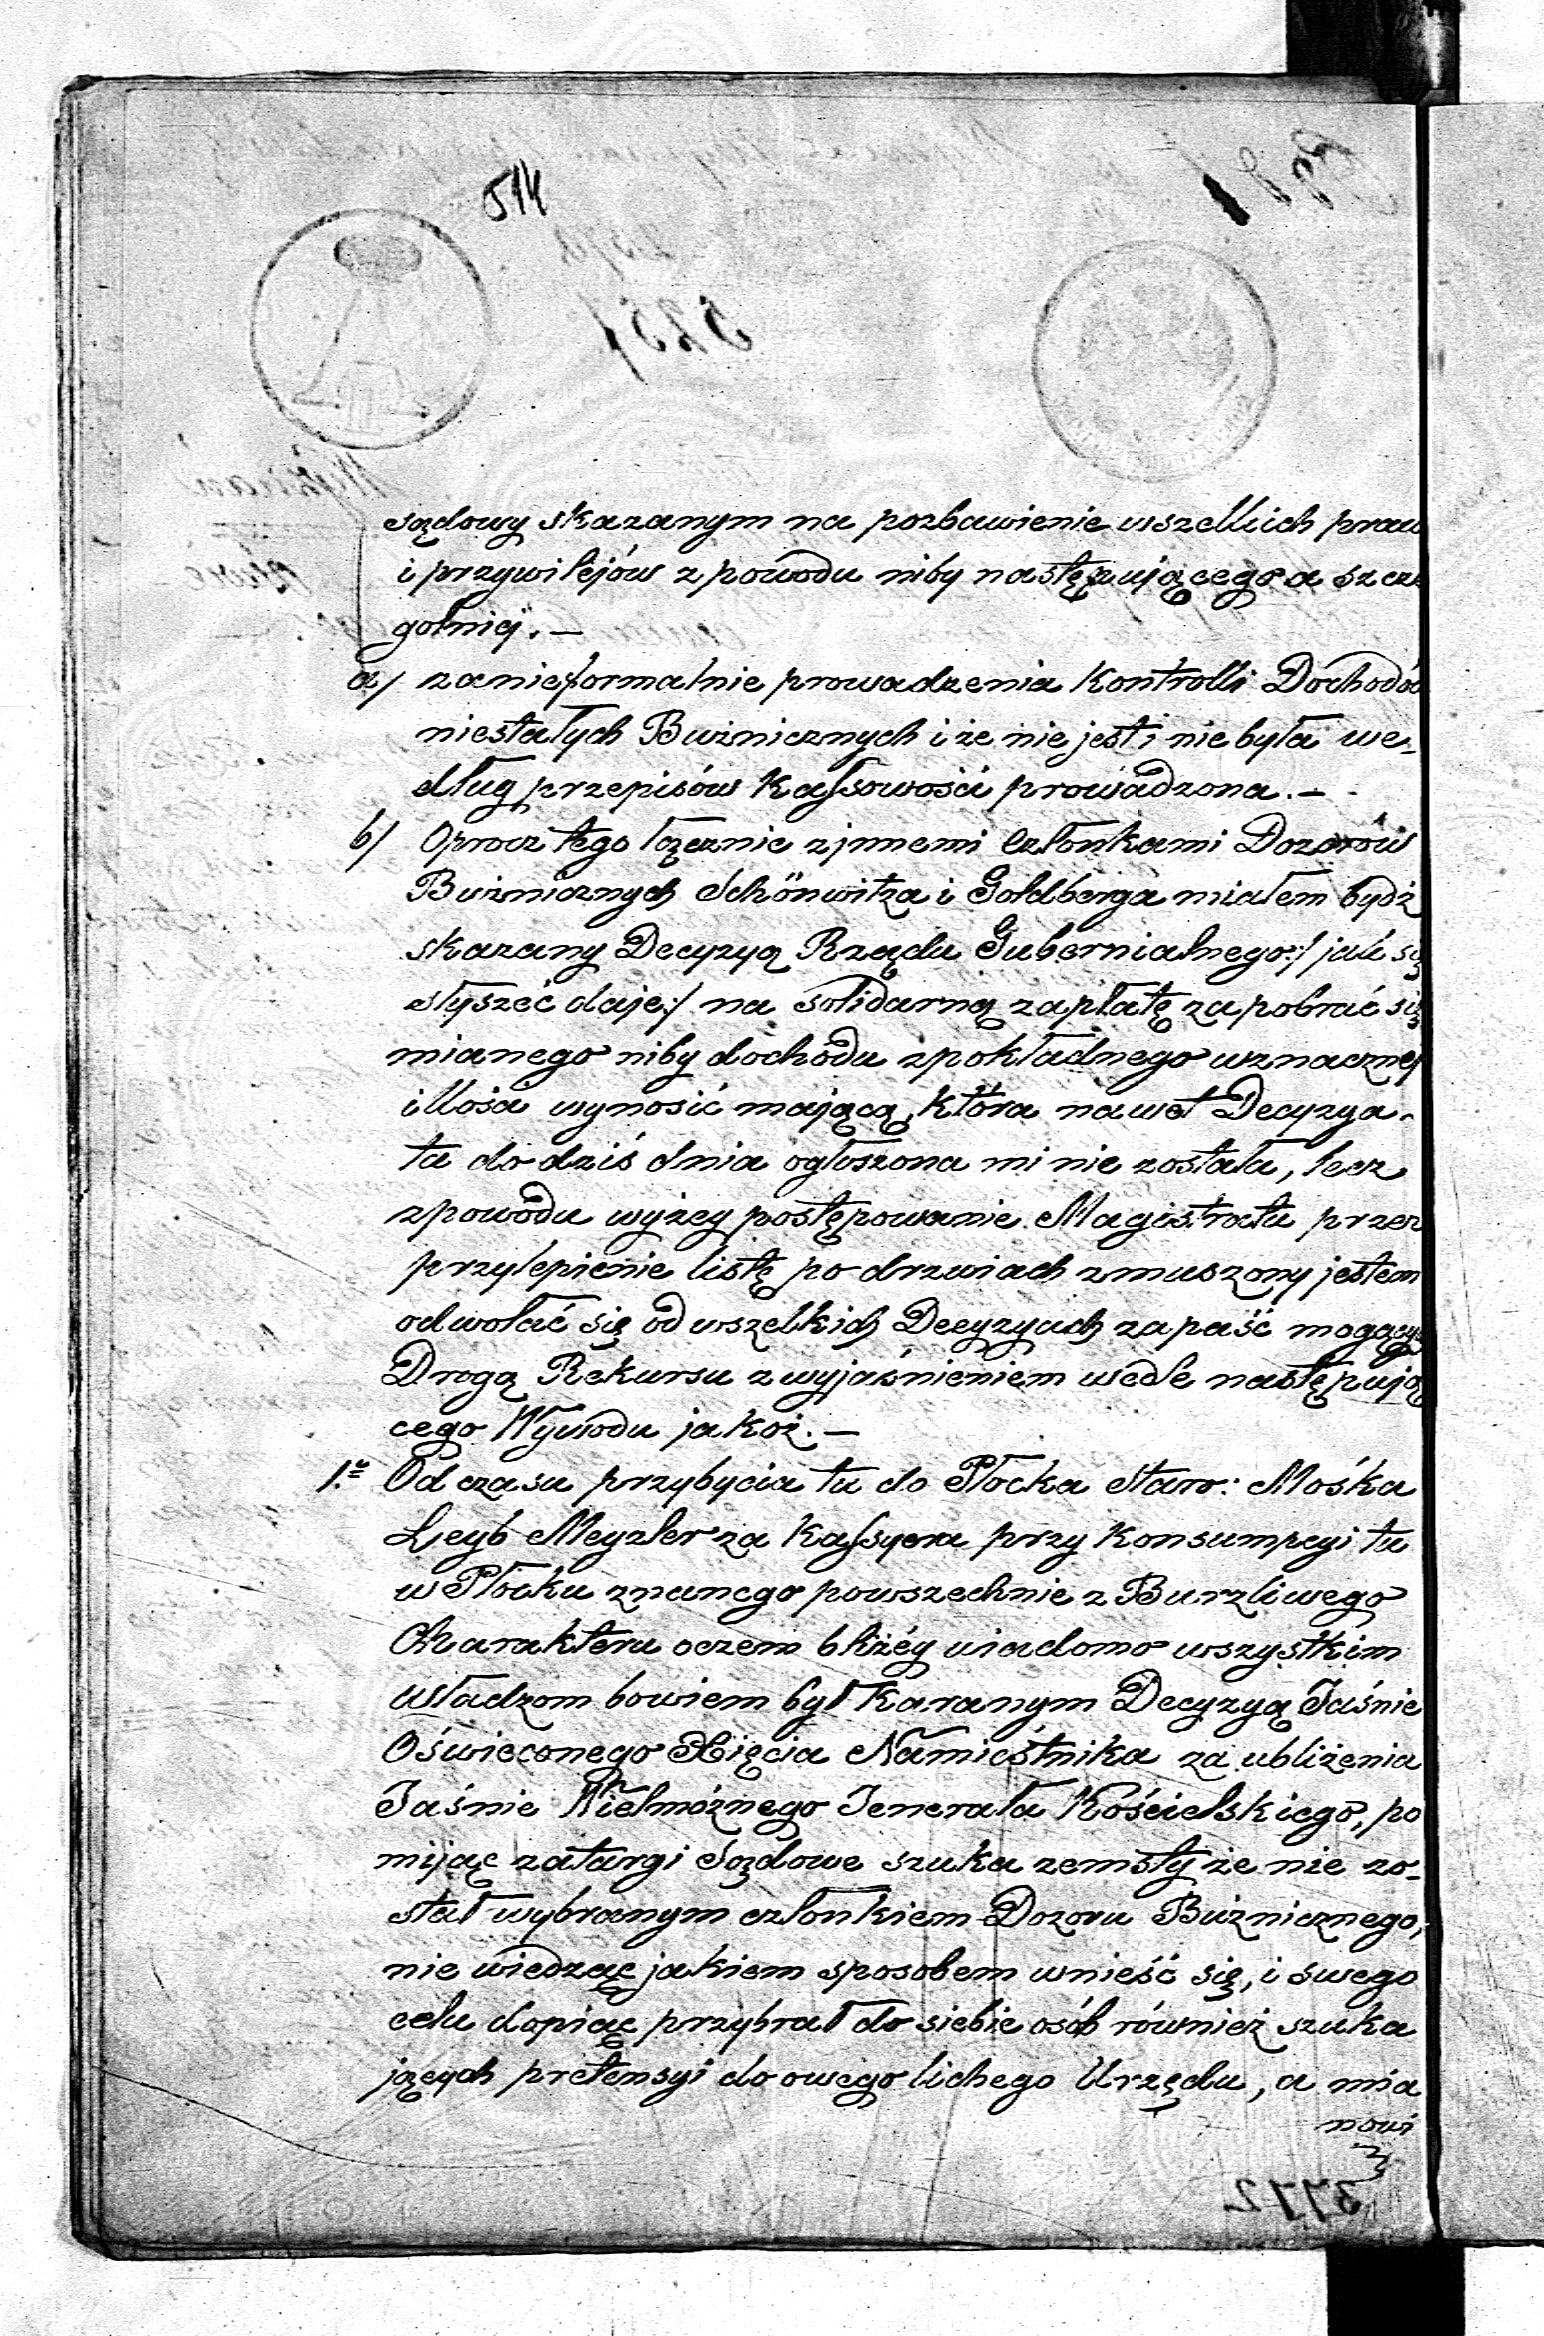 514
sądowy skazanym na pozbawienie wszellkich praw
i przywilejów z powodu niby następującego a szcze
gołniej. —
a/ zanieformalnie prowadzenia Kontrolli Dochodów
niestałych Bużnicznych i że nie jest i nie była we-
dług przepisów Kassowości prowadzona. —
b/ Oprocz tego łącznie z jnnemi Członkami Dozorów
Bużnicznych Schönwitza i Goldberga miałem bydź
skazany Decyzyą Rządu Gubernialnego :/ jak się
słyszeć daje :/ na solidarną zapłatę za pobrać się
mianego niby dochodu z pokładnego w znacznej
illości wynosić mającą, która nawet Decyzya
ta do dziś dnia ogłoszona mi nie została, lecz
z powodu wyżey postępowanie Magistratu przez
przylepienie listę po drzwiach zmuszony jestem
odwołać się od wszelkich Decyzyach zapaść mogących
Drogą Rekursu z wyjaśnieniem wedle następują
cego Wywodu jakoż. —
1.º Od czasu przybycia tu do Płocka Staro: Mośka
Leyb Meyzler za Kassyera przy Konsumpcyi tu
w Płocku znanego powszechnie z Burzliwego
Charakteru oczem bliżéy wiadomo wszystkim
władzom bowiem był Karanym Decyzyą Jaśnie
Oświeconego Xięcia Namiestnika za ubliżenia
Jaśnie Wielmóżnego Jenerała Kościelskiego, po
mijaę zatargi Sądowe szuka zemsty że nie zo-
stał wybranym członkiem Dozoru Bużnicznego,
nie wiedzaę jakiem sposobem wnieść się, i swego
celu dopiąę przybrał do siebie osób również szuka
jących pretensyi do owego lichego Urzędu, a mia
nowi